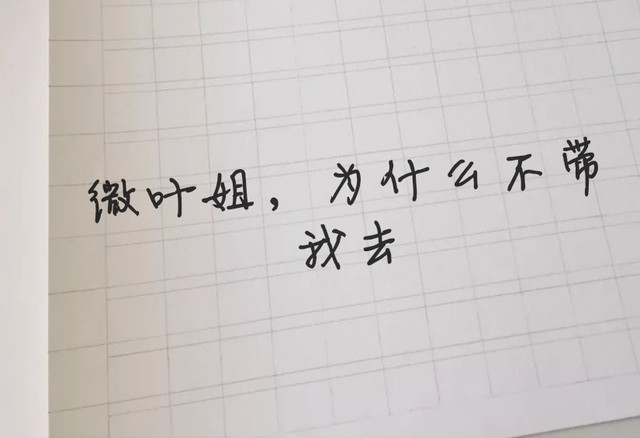 微叶姐，为什么不带
我去